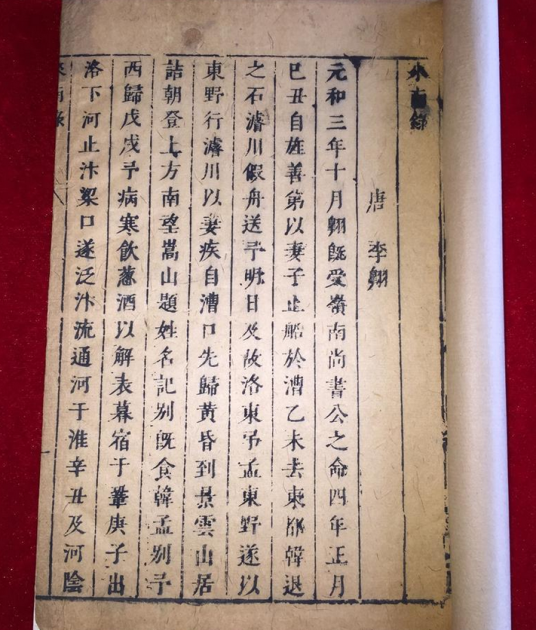 來南錄
唐 李翱
元和三年十月翱旣受嶺南尚書公之命四年正月
巳丑自旌善第以妻子止船於漕乙未去東都韓退
之石濬川假舟送予明日及故洛東弔孟東野遂以
東野行濬川以妻疾自漕口先歸黃昏到景雲山居
詰朝登上方南望嵩山題姓名記别旣食韓孟别予
西歸戊戌予病寒飲蔥酒以解表暮宿于鞏庚子出
洛下河止汴梁口遂泛汴流通河于淮辛丑及河陰
來南錄